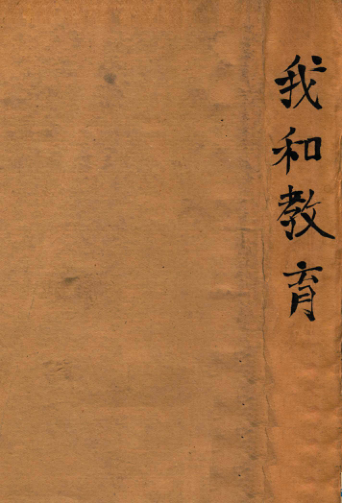 我和教育